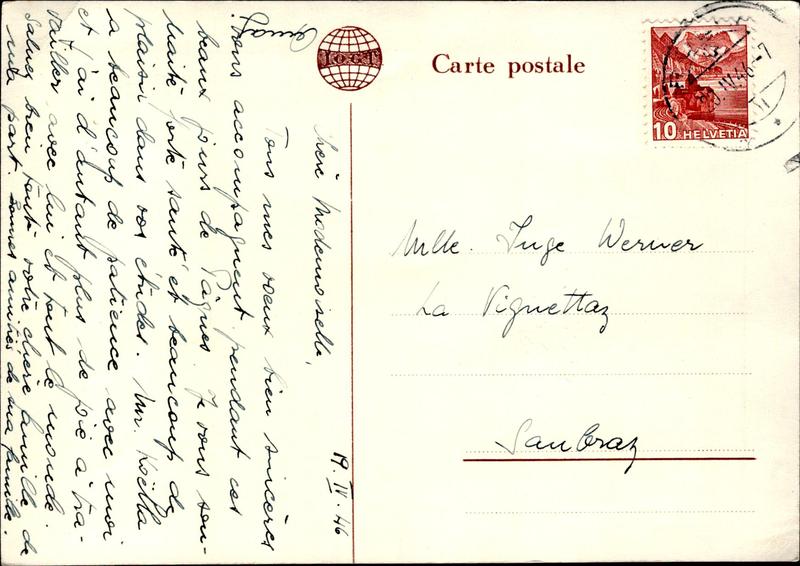 I.O.G.T
Carte postale
10 HELVETIA
19. IV. 46
Chère Mademoiselle,
Tous mes voeux bien sincères
vous accompagnent pendant ces
beaux jours de Pâques. Je vous sou-
haite forte santé et beaucoup de
plaisir dans vos études. Mr.
a beaucoup de patience avec moi
et j'ai d'autant plus de joie à tra-
vailler avec lui et tout le monde.
Saluez bien toute votre chère famille de
ma part. Bonnes amitiés de ma famille.
Mlle. Inge Werner
La Vignettaz